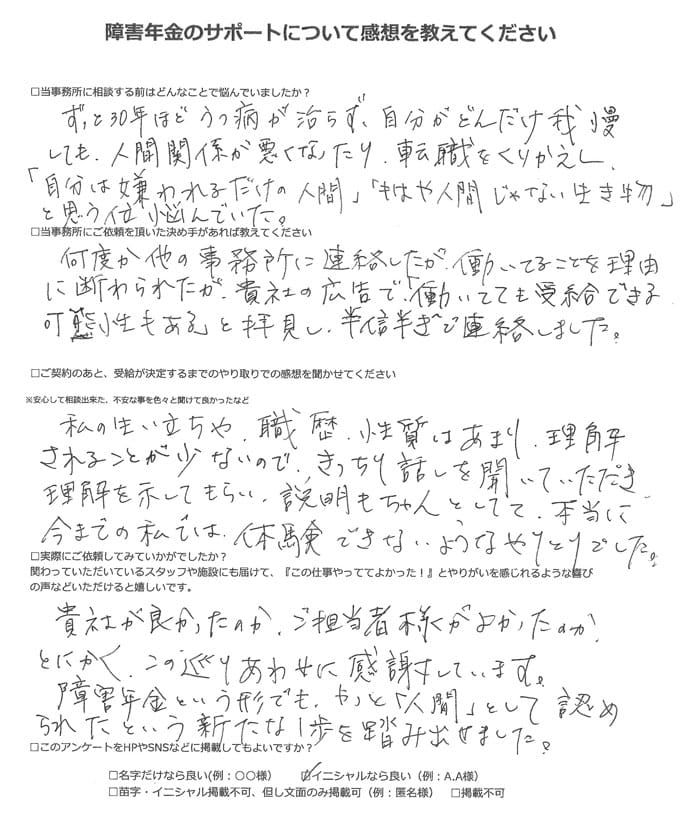 障害年金のサポートについて感想を教えてください
□当事務所に相談する前はどんなことで悩んでいましたか？
ずっと30年ほどうつ病が治らず、自分がどんだけ我慢
しても、人間関係が悪くなたり、転職をくりかえし、
「自分は嫌われるだけの人間」「もはや人間じゃない生き物」
と思う位悩んでいた。
□当事務所にご依頼を頂いた決め手があれば教えてください
何度か他の事務所に連絡したが、働いてることを理由
に断わられたが、貴社の広告で、「働いてても受給できる
可能性もある」と拝見し、半信半ぎで連絡しました。
□ご契約のあと、受給が決定するまでのやり取りでの感想を聞かせてください
※安心して相談出来た、不安な事を色々と聞けて良かったなど
私の生い立ちや、職歴、性質はあまり、理解
されることが少ないので、きっちり話しを聞いていただき
理解を示してもらい、説明もちゃんとしてて、本当に
今までの私では、体験できないようなやりとりでした。
□実際にご依頼してみていかがでしたか？
関わっていただいているスタッフや施設にも届けて、『この仕事やっててよかった！』とやりがいを感じれるような喜び
の声などいただけると嬉しいです。
貴社が良かったのか、ご担当者様がよかったのか、
とにかく、この巡りあわせに感謝しています。
障害年金という形でも、やっと「人間」として認め
られたという新たな1歩を踏み出せました。
□このアンケートをHPやSNSなどに掲載してもよいですか？
□名字だけなら良い(例：〇〇様） ☑イニシャルなら良い（例：A.A様）
□苗字・イニシャル掲載不可、但し文面のみ掲載可（例：匿名様） □掲載不可